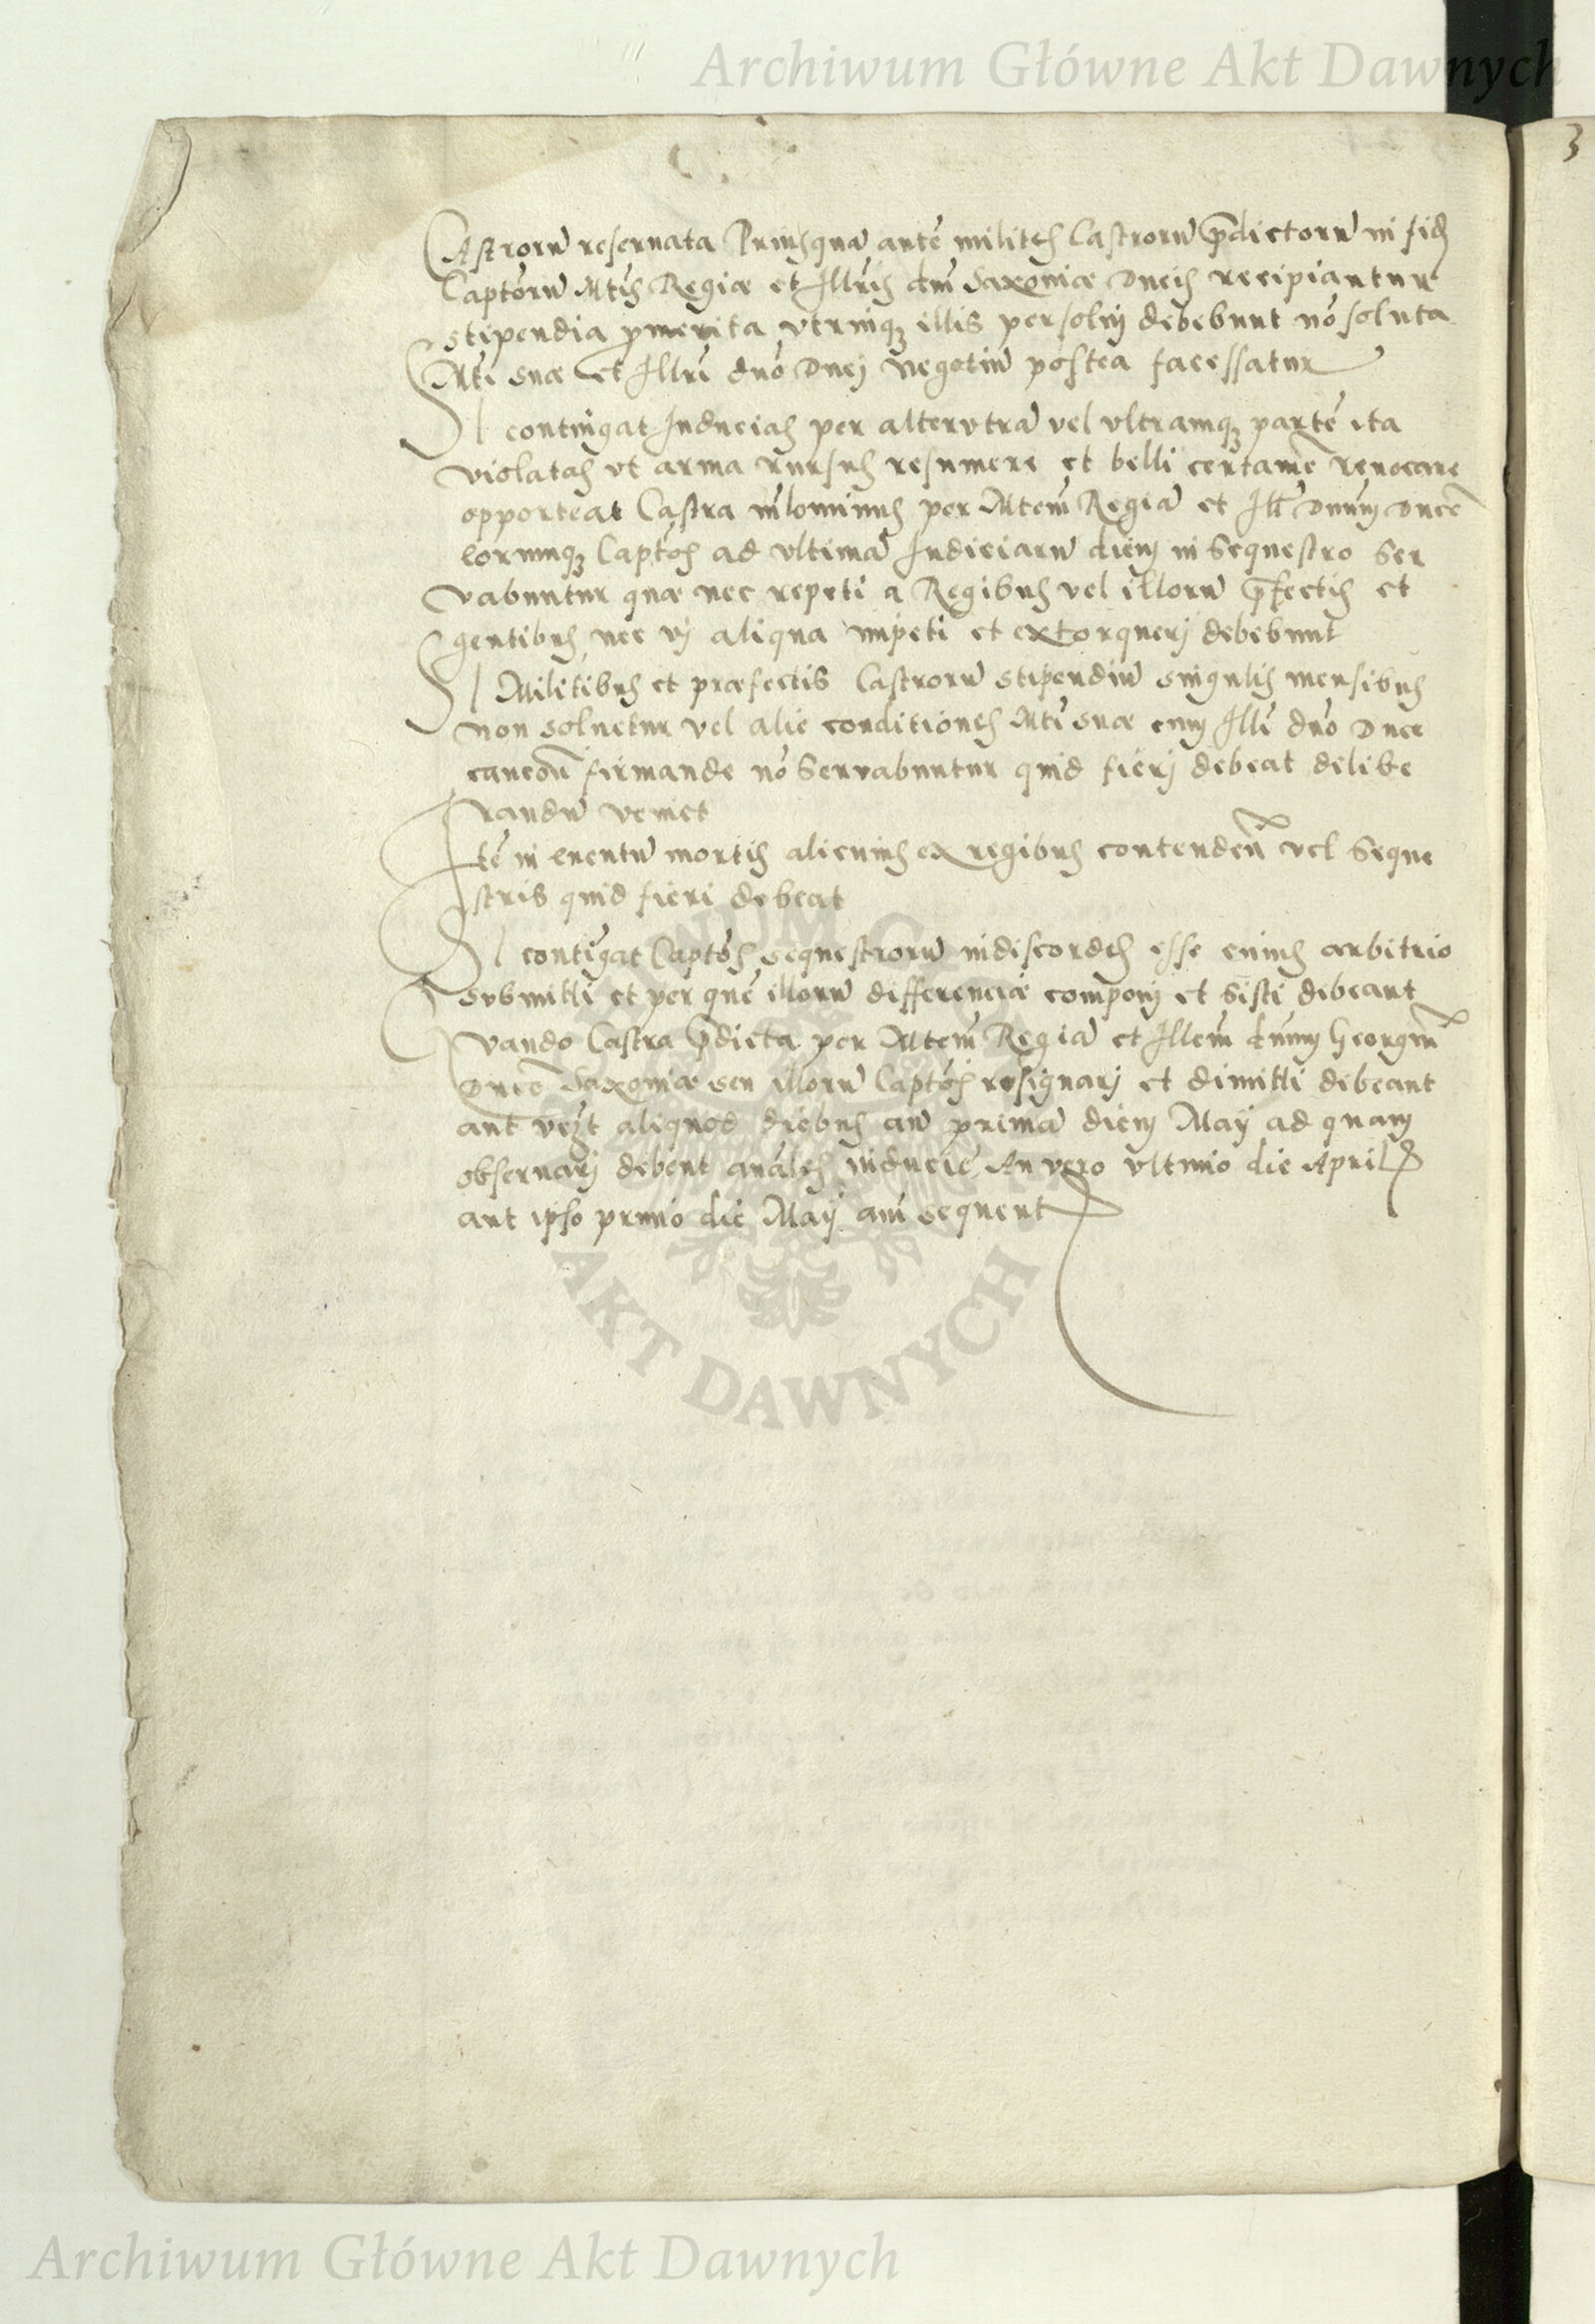 Archiwum Główne Akt Dawnych
3
Castrorū reseruata Priusquā autē milites Castrorū p̄dictorū in fidē
Captorū Mtis Regiæ et Illris dm̄ Saxoniæ Ducis recipiantur
stipendia p̄merita vtrinq3 illis persolui debebunt nō soluta
Mti suæ et Illri dnō Duci negotiū postea facessatur
SI contingat Inducias per alterutrā vel vltramq3 partē ita
violatas vt arma rursus resumere et belli certamē reuocare
opporteat Castra in per Mtem Regiā et Ill Dnum Ducē
eorumq3 Captos ad vltimā Induciarū diem in Sequestro Ser
vabuntur quæ nec repeti a Regibus vel illorū p̄fectis et
gentibus nec vi aliqua impeti et extorqueri debebunt
SI Militibus et præfectis Castrorū stipendiū singulis mensibus
non soluetur vel alie conditiones Mti suæ cum Illi dnō Duce
firmande nō Servabuntur quid fieri debeat delibe
randū veniet
Itē in euentū mortis alicuius ex regibus contendeñ vel Seque
stris quid fieri debeat
SI contīgat Captōs sequestrorū indiscordes esse cuius arbitrio
Submitti et per quē illorū differenciæ componi et Sisti debeant
Quando Castra p̄dicta per Mtem Regiā et Illem dnum Georgiū
Ducē Saxoniæ seu illorū Captōs resignari et dimitti debeant
aut aliquod diebus añ primā diem Maÿ ad quam
obseruari debent añales inducie An vero vltimo die April
aut ipso primo die Maÿ añi sequent
AKT DAWNYCH
Archiwum Główne Akt Dawnych